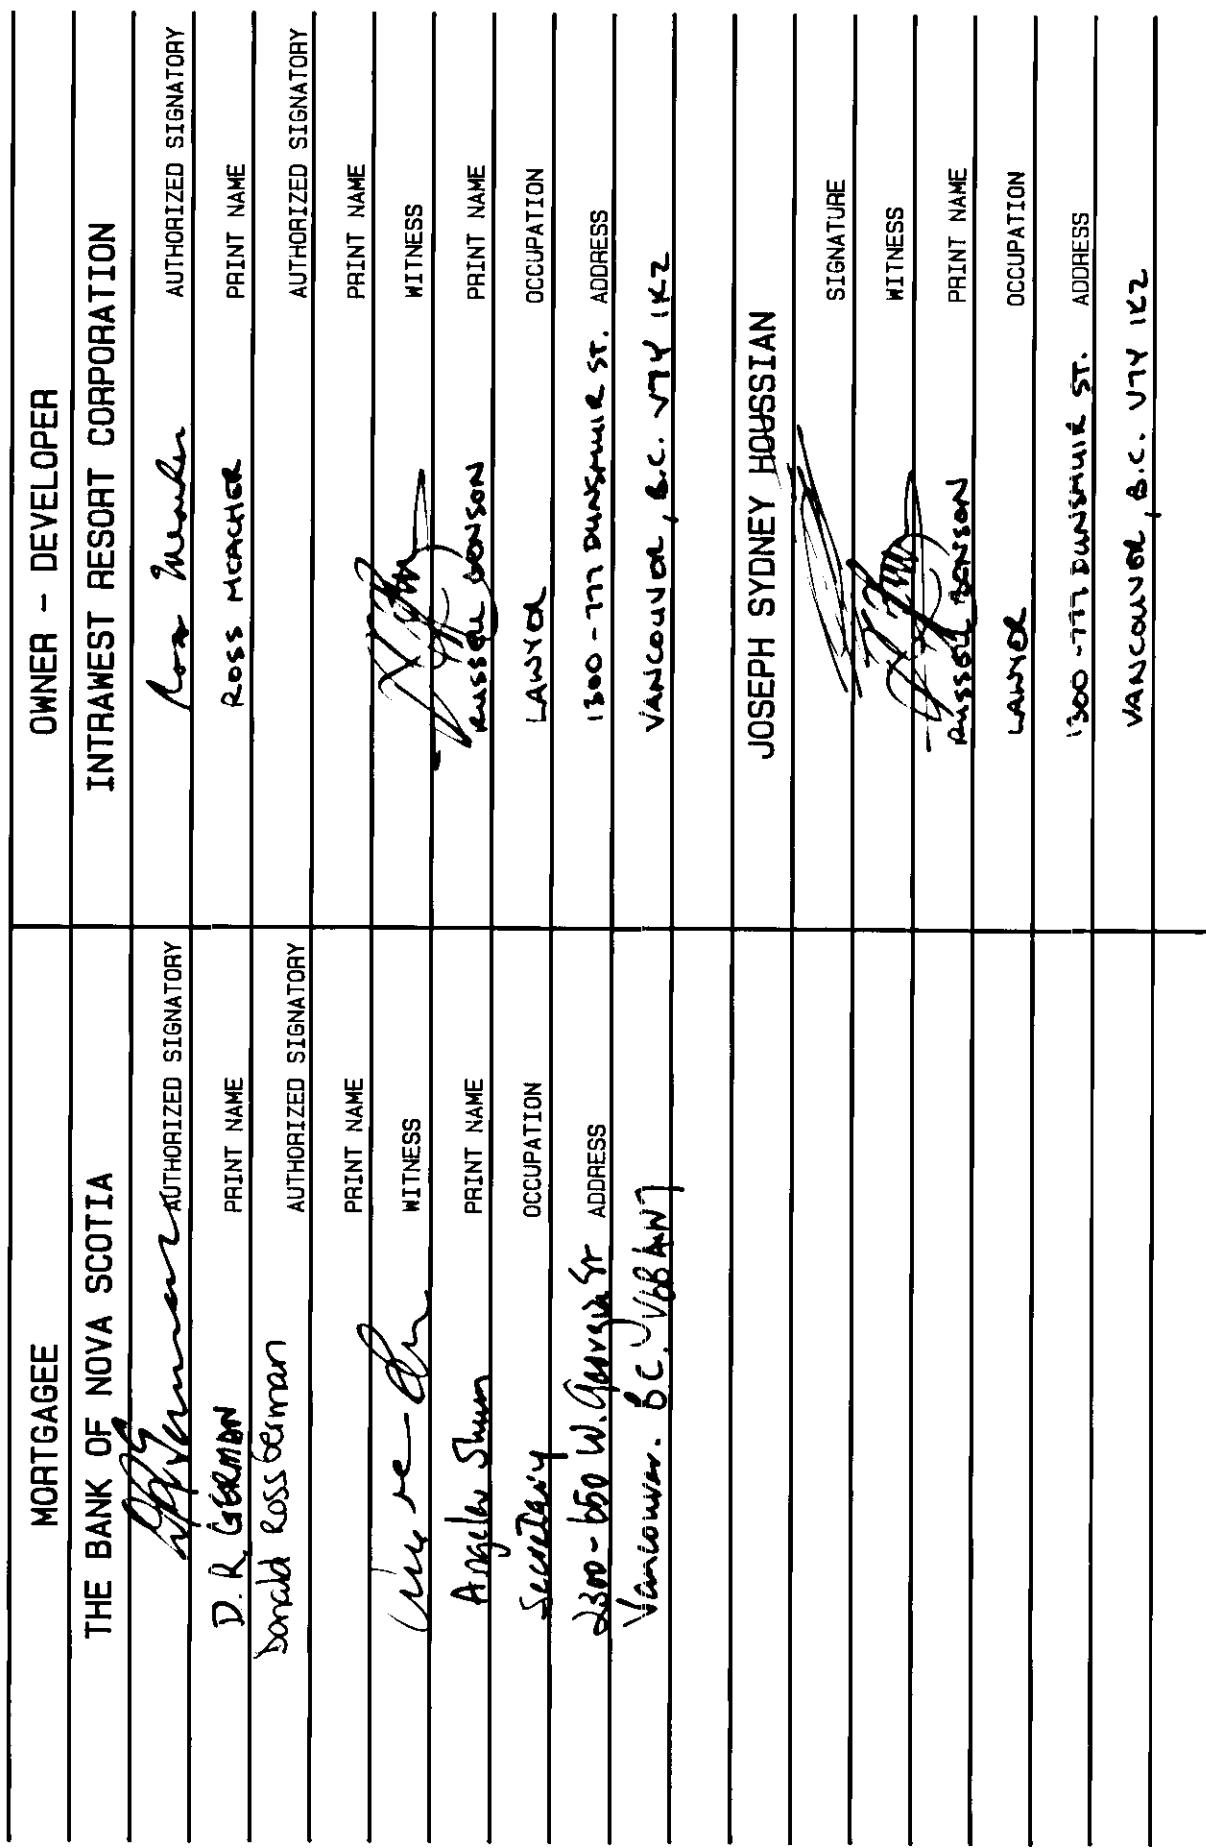 MORTGAGEE
THE BANK OF NOVA SCOTIA
AUTHORIZED SIGNATORY
D.R. GERMAN PRINT NAME
Donald Ross German AUTHORIZED SIGNATORY
PRINT NAME
WITNESS
Angela Shum PRINT NAME
Secretary OCCUPATION
2300-650 W. Georgia St ADDRESS
Vancouver. B.C. V6B 4N7
OWNER - DEVELOPER
INTRAWEST RESORT CORPORATION
AUTHORIZED SIGNATORY
ROSS MEACHER PRINT NAME
AUTHORIZED SIGNATORY
PRINT NAME
WITNESS
RUSSELL BENSON PRINT NAME
LAWYER OCCUPATION
1300-777 DUNSMUIR ST. ADDRESS
VANCOUVER, B.C. V7Y 1K2
JOSEPH SYDNEY HOUSSIAN
SIGNATURE
WITNESS
RUSSELL BENSON PRINT NAME
LAWYER OCCUPATION
1300-777 DUNSMUIR ST. ADDRESS
VANCOUVER, B.C. V7Y 1K2